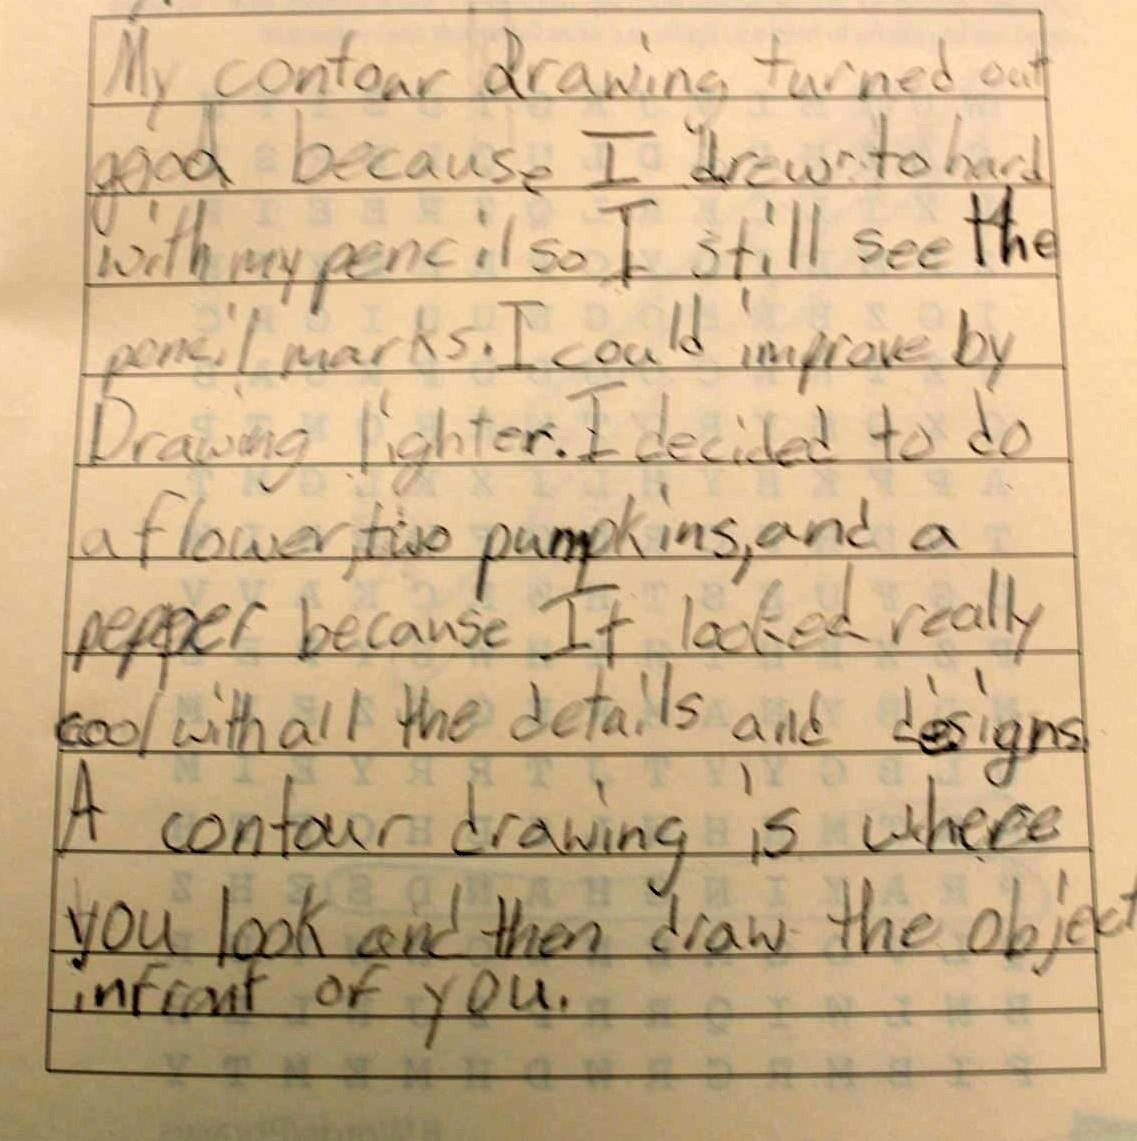 My contour drawing turned out
good because I drew to hard
with my pencil so I still see the
pencil marks. I could improve by
Drawing lighter. I decided to do
a flower, two pumpkins, and a
pepper because It looked really
cool with all the details and designs.
A contour drawing is where
you look and then draw the object
infront of you.